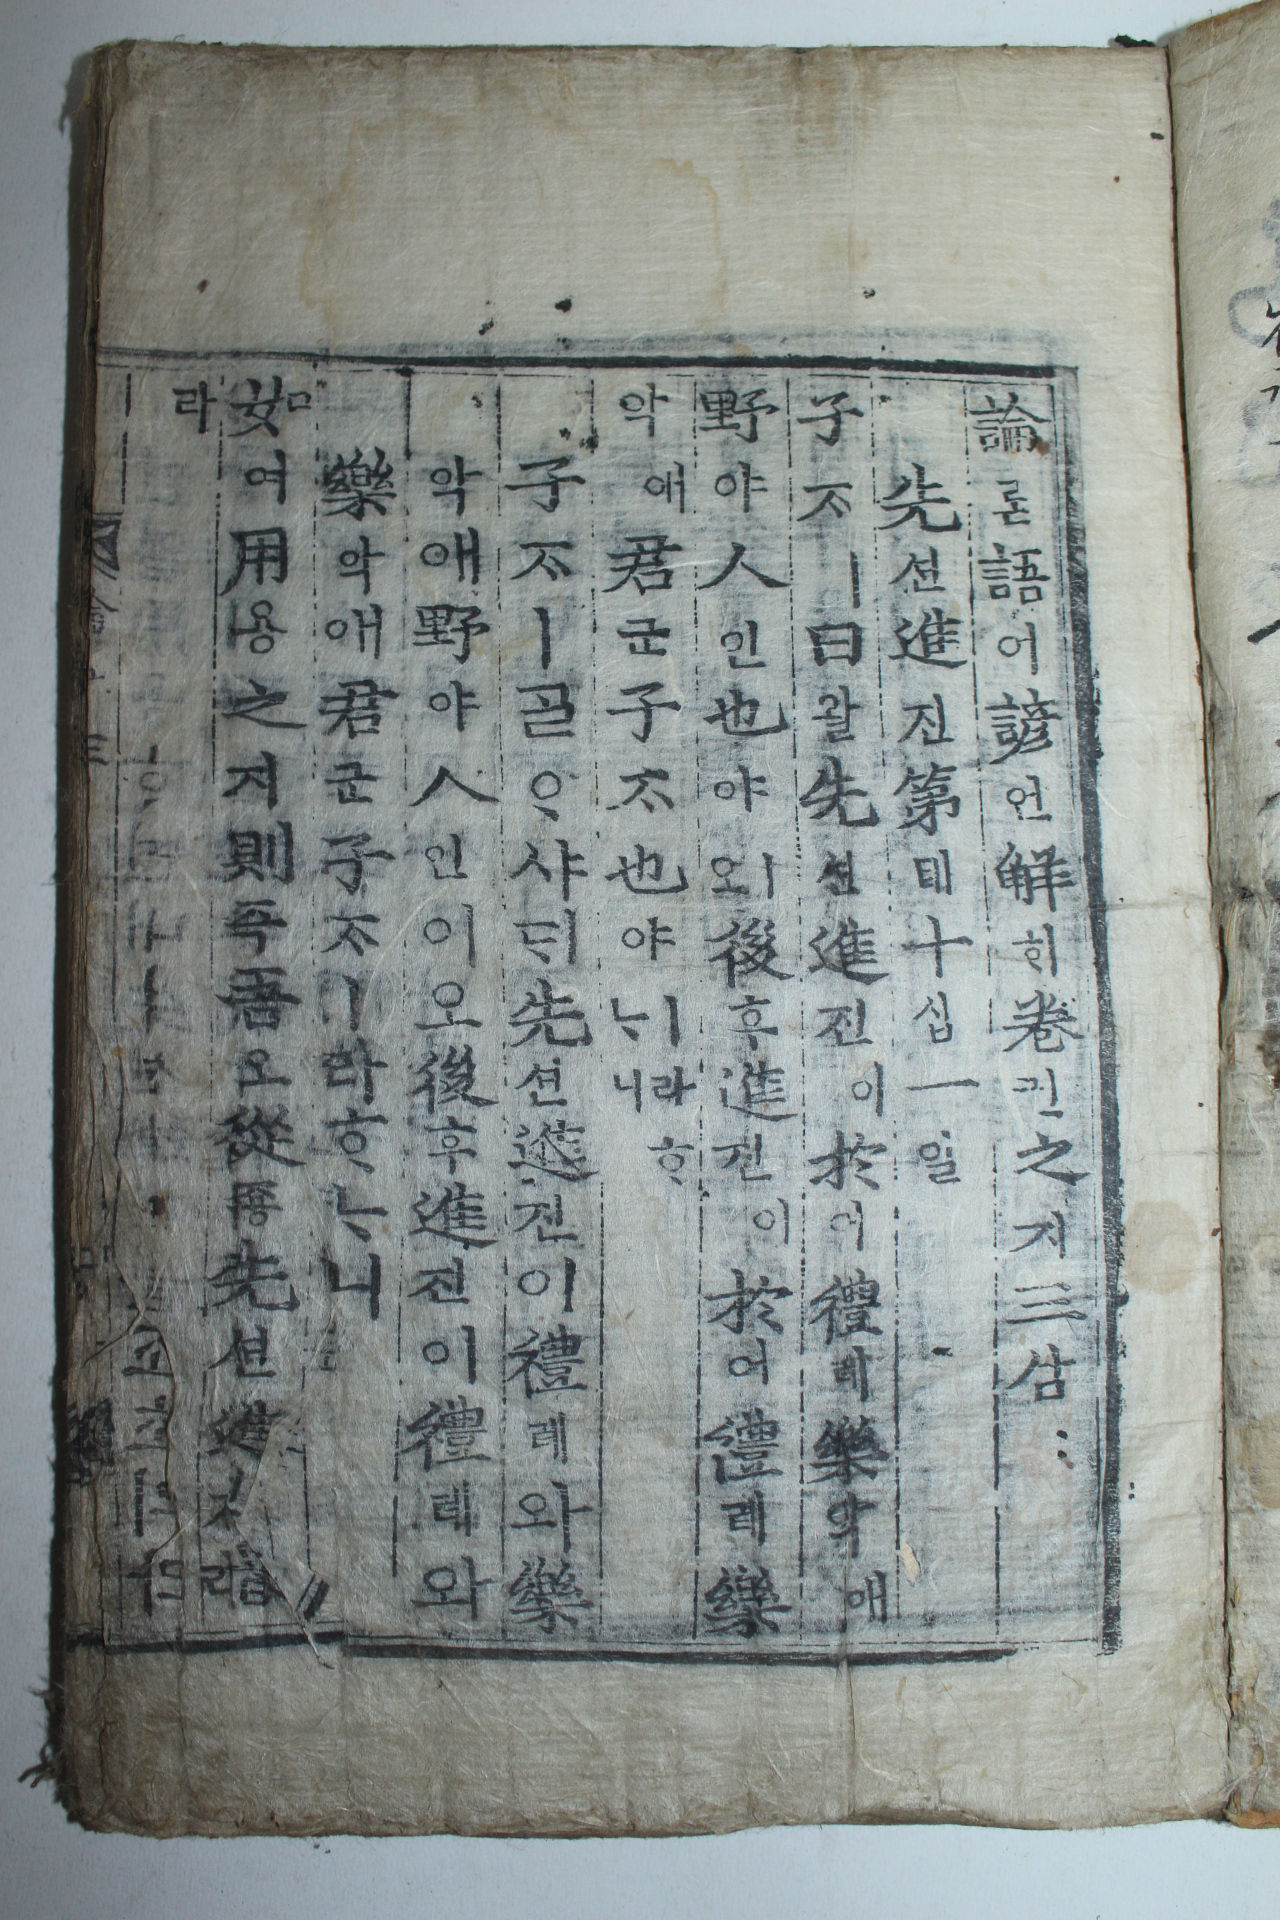 論론語어諺언解히卷권之지三삼
先션進진第뎨十십一일
子ᄌᆞㅣ曰왈先션進진이於어禮례樂악애
野야人인也야ㅣ오後후進진이於어禮례樂
악애君군子ᄌᆞ也야ㅣ라ᄒᆞᄂᆞ니
子ᄌᆞㅣᄀᆞᆯᄋᆞ샤ᄃᆡ先션進진이禮례와樂
악애野야人인이오後후進진이禮례와
樂악애君군子ᄌᆞㅣ라ᄒᆞᄂᆞ니
如여用용之지則즉吾오從죵先션進
라